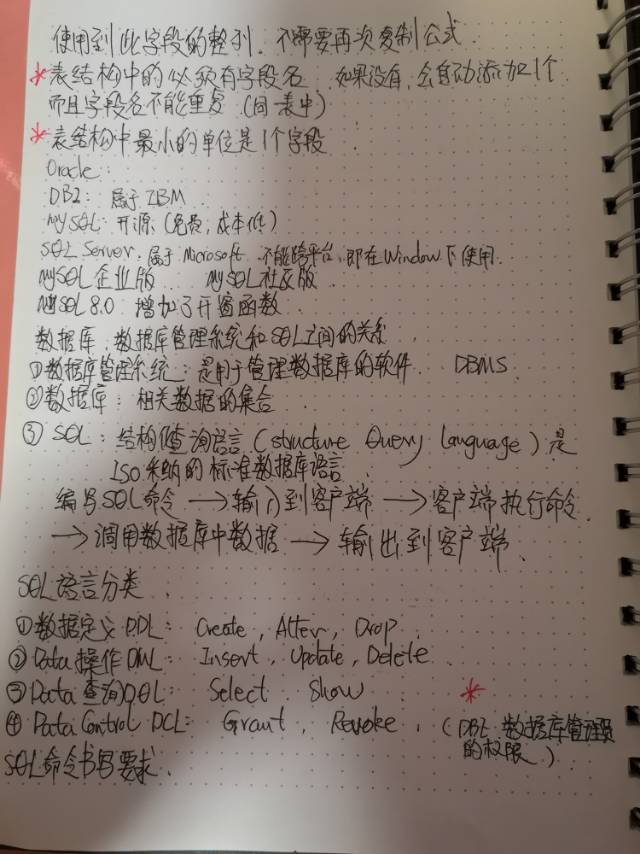 使用到此字段的整列. 不需要再次复制公式
*表结构中的必须有字段名 如果没有, 会自动添加1个
而且字段名不能重复 (同一表中)
*表结构中最小的单位是1个字段
Oracle:
DB2: 属于IBM
MySQL: 开源 (免费, 成本低)
SQL Server. 属于 Microsoft 不能跨平台, 即在Window下使用.
MySQL企业版 MySQL社区版
MySQL 8.0 增加了开窗函数
数据库, 数据库管理系统和SQL之间的关系
①数据库管理系统: 是用于管理数据库的软件. DBMS
②数据库: 相关数据的集合
③ SQL: 结构化查询语言 (structure Query Language) 是
ISO采纳的标准数据库语言
编写SQL命令 → 输入到客户端 → 客户端执行命令.
→ 调用数据库中数据 → 输出到客户端
SQL语言分类
①数据定义DDL: Create, Alter, Drop
②Data操作DML: Insert, Update, Delete
③Data查询DQL: Select Show *
④ Data Control DCL: Grant, Revoke, (DBA 数据库管理员
的权限)
SQL命令书写要求